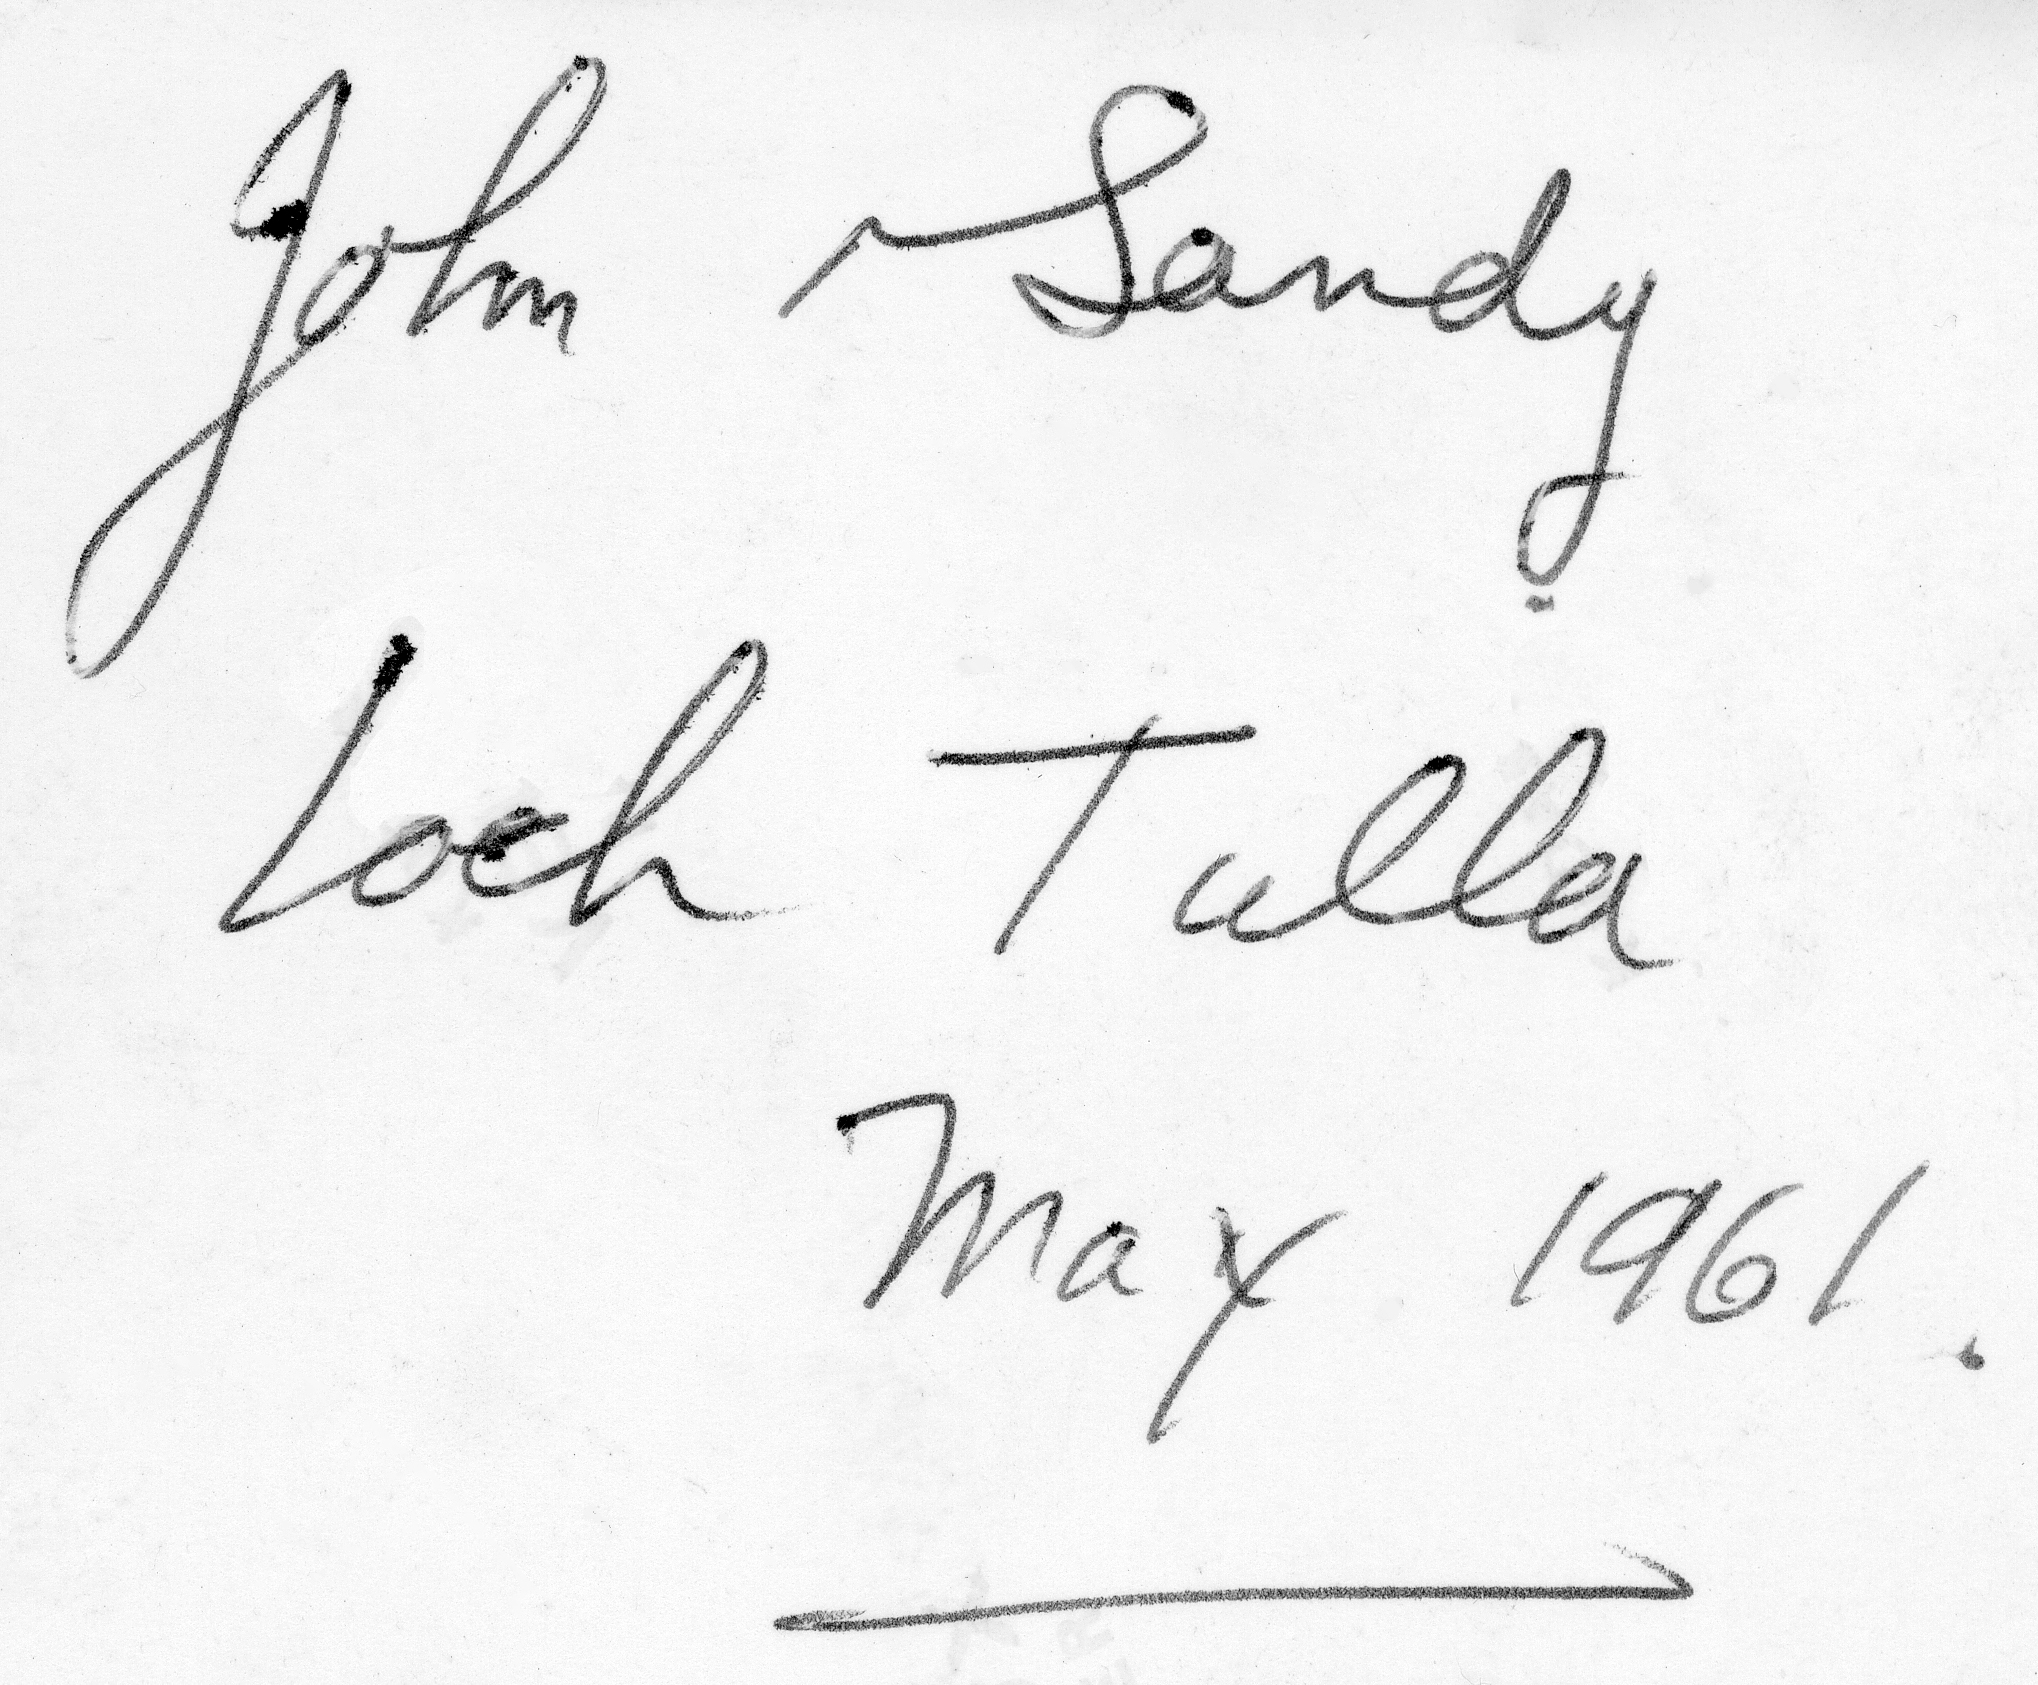 John & Sandy
Loch Tulla
May 1961.